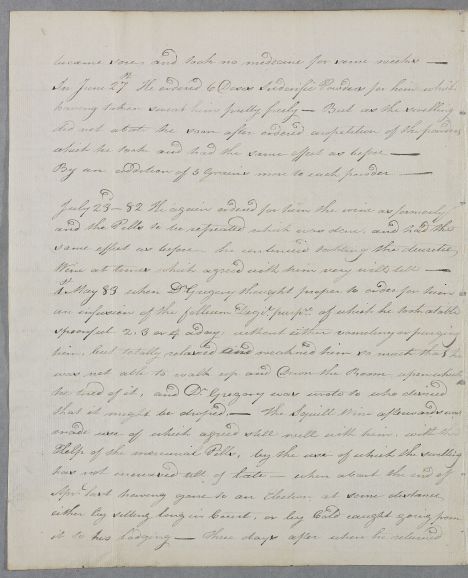 became sore, and took no medicine for some weeks —
In June 27th He ordered 6 Doses Sudorific Powders for him which
having taken sweat him pretty freely — But as the swelling
did not abate He soon after ordered a repetition of the powders
which he took and had the same effect as before —
By an addition of 5 Grains more to each powder —
July 23d — 82 He again ordered for him the wine as formerly
and the Pills to be repeated which was done, and had the
same effect as before he continued taking the diuretic
Wine at times which agreed with him very well till —
May 83 when Dr Gregory thought proper to order for him
an infusion of the foliorum Digit. purp. of which he took a table
spoonful 2. 3 or 4 a day, without either vomiting or purging
him, but totally relaxed and weakened him so much that he
was not able to walk up and Down the Room, upon which
he tired of it, and Dr Gregory was wrote to who desired
that it might be droped — The Squill Wine afterwards was
made use of which agreed still well with him, with the
Help of the mercurial Pills, by the use of which the swelling
has not increased till of late — when about the end of
Apr. last having gone to an Election, at some distance
either by sitting long in Court, or by Cold caught going from
it to his Lodging — Three days after when he returned